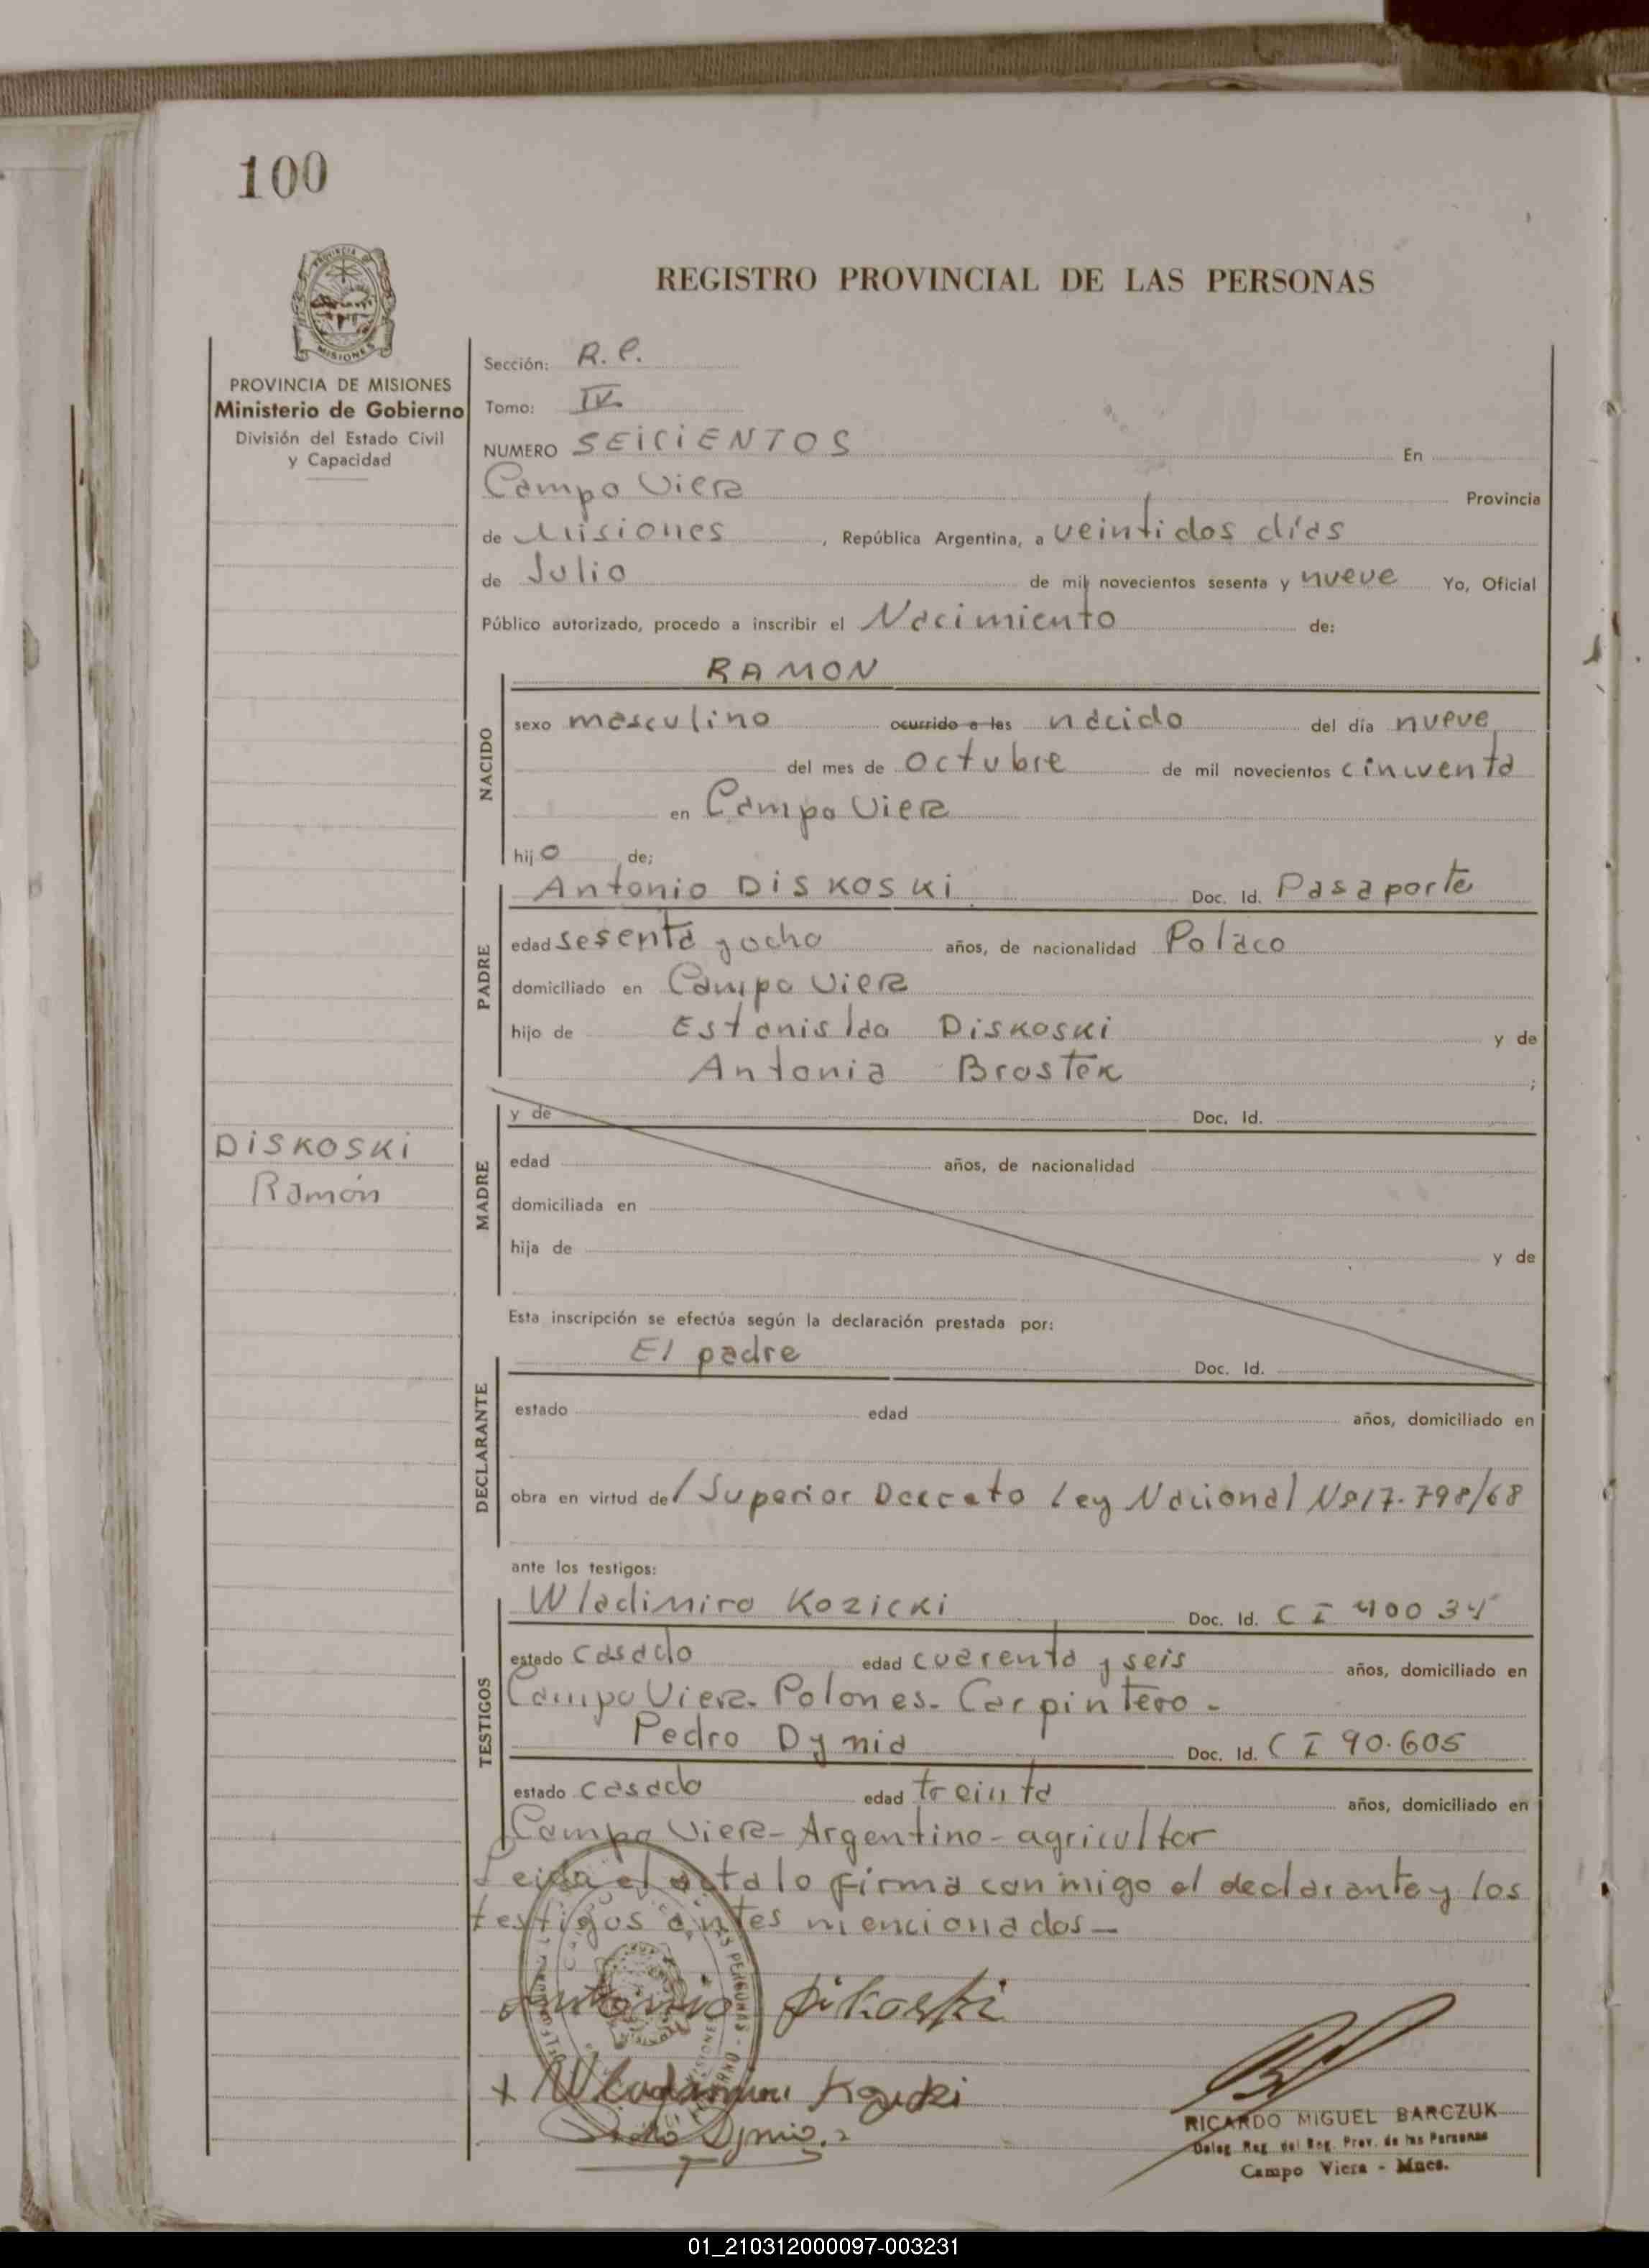 100
PROVINCIA DE
MISIONES
PROVINCIA DE MISIONES
Ministerio de Gobierno
División del Estado Civil
y Capacidad
DISKOSKI
Ramón
REGISTRO PROVINCIAL DE LAS PERSONAS
Sección: R. P.
Tomo: IV
NUMERO SEICIENTOS En
Campo Viera Provincia
de Misiones, República Argentina, a veintidos días
de Julio de mil novecientos sesenta y nueve Yo, Oficial
Público autorizado, procedo a inscribir el Nacimiento de:
RAMON
NACIDO
sexo masculino ocurrido a las nacido del día nueve
del mes de octubre de mil novecientos cincuenta
en Campo Viera
hijo de;
PADRE
Antonio DISKOSKI Doc. Id. Pasaporte
edad sesenta y ocho años, de nacionalidad Polaco
domiciliado en Campo Viera
hijo de Estanislao Diskoski y de
Antonia Brostek ;
MADRE
y de Doc. Id.
edad años, de nacionalidad
domiciliada en
hija de y de
Esta inscripción se efectúa según la declaración prestada por:
DECLARANTE
El padre Doc. Id.
estado edad años, domiciliado en
obra en virtud del Superior Decreto Ley Nacional Nº 17.798/68
ante los testigos:
TESTIGOS
Wladimiro Kozicki Doc. Id. C I
estado casado edad cuarenta y seis años, domiciliado en
Campo Viera. Polones. Carpintero.
Pedro Dynia Doc. Id. C I 90.605
estado casado edad treinta años, domiciliado en
Campo Viera - Argentino - agricultor
Leida el acta lo firma conmigo el declarante y los
testigos antes mencionados -
Antonio Dikoski
RICARDO MIGUEL BARCZUK
Deleg. Reg. del Reg. Prov. de las Personas
Campo Viera - Mnes.
01_210312000097-003231